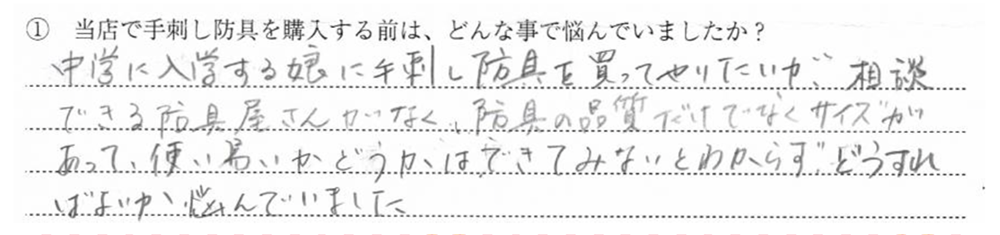 ① 当店で手刺し防具を購入する前は、どんな事で悩んでいましたか？
中学に入学する娘に手刺し防具を買ってやりたいが、相談
できる防具屋さんがなく、防具の品質だけでなくサイズが
あって、使い易いかどうかはできてみないとわからず、どうすれ
ばよいか悩んでいました